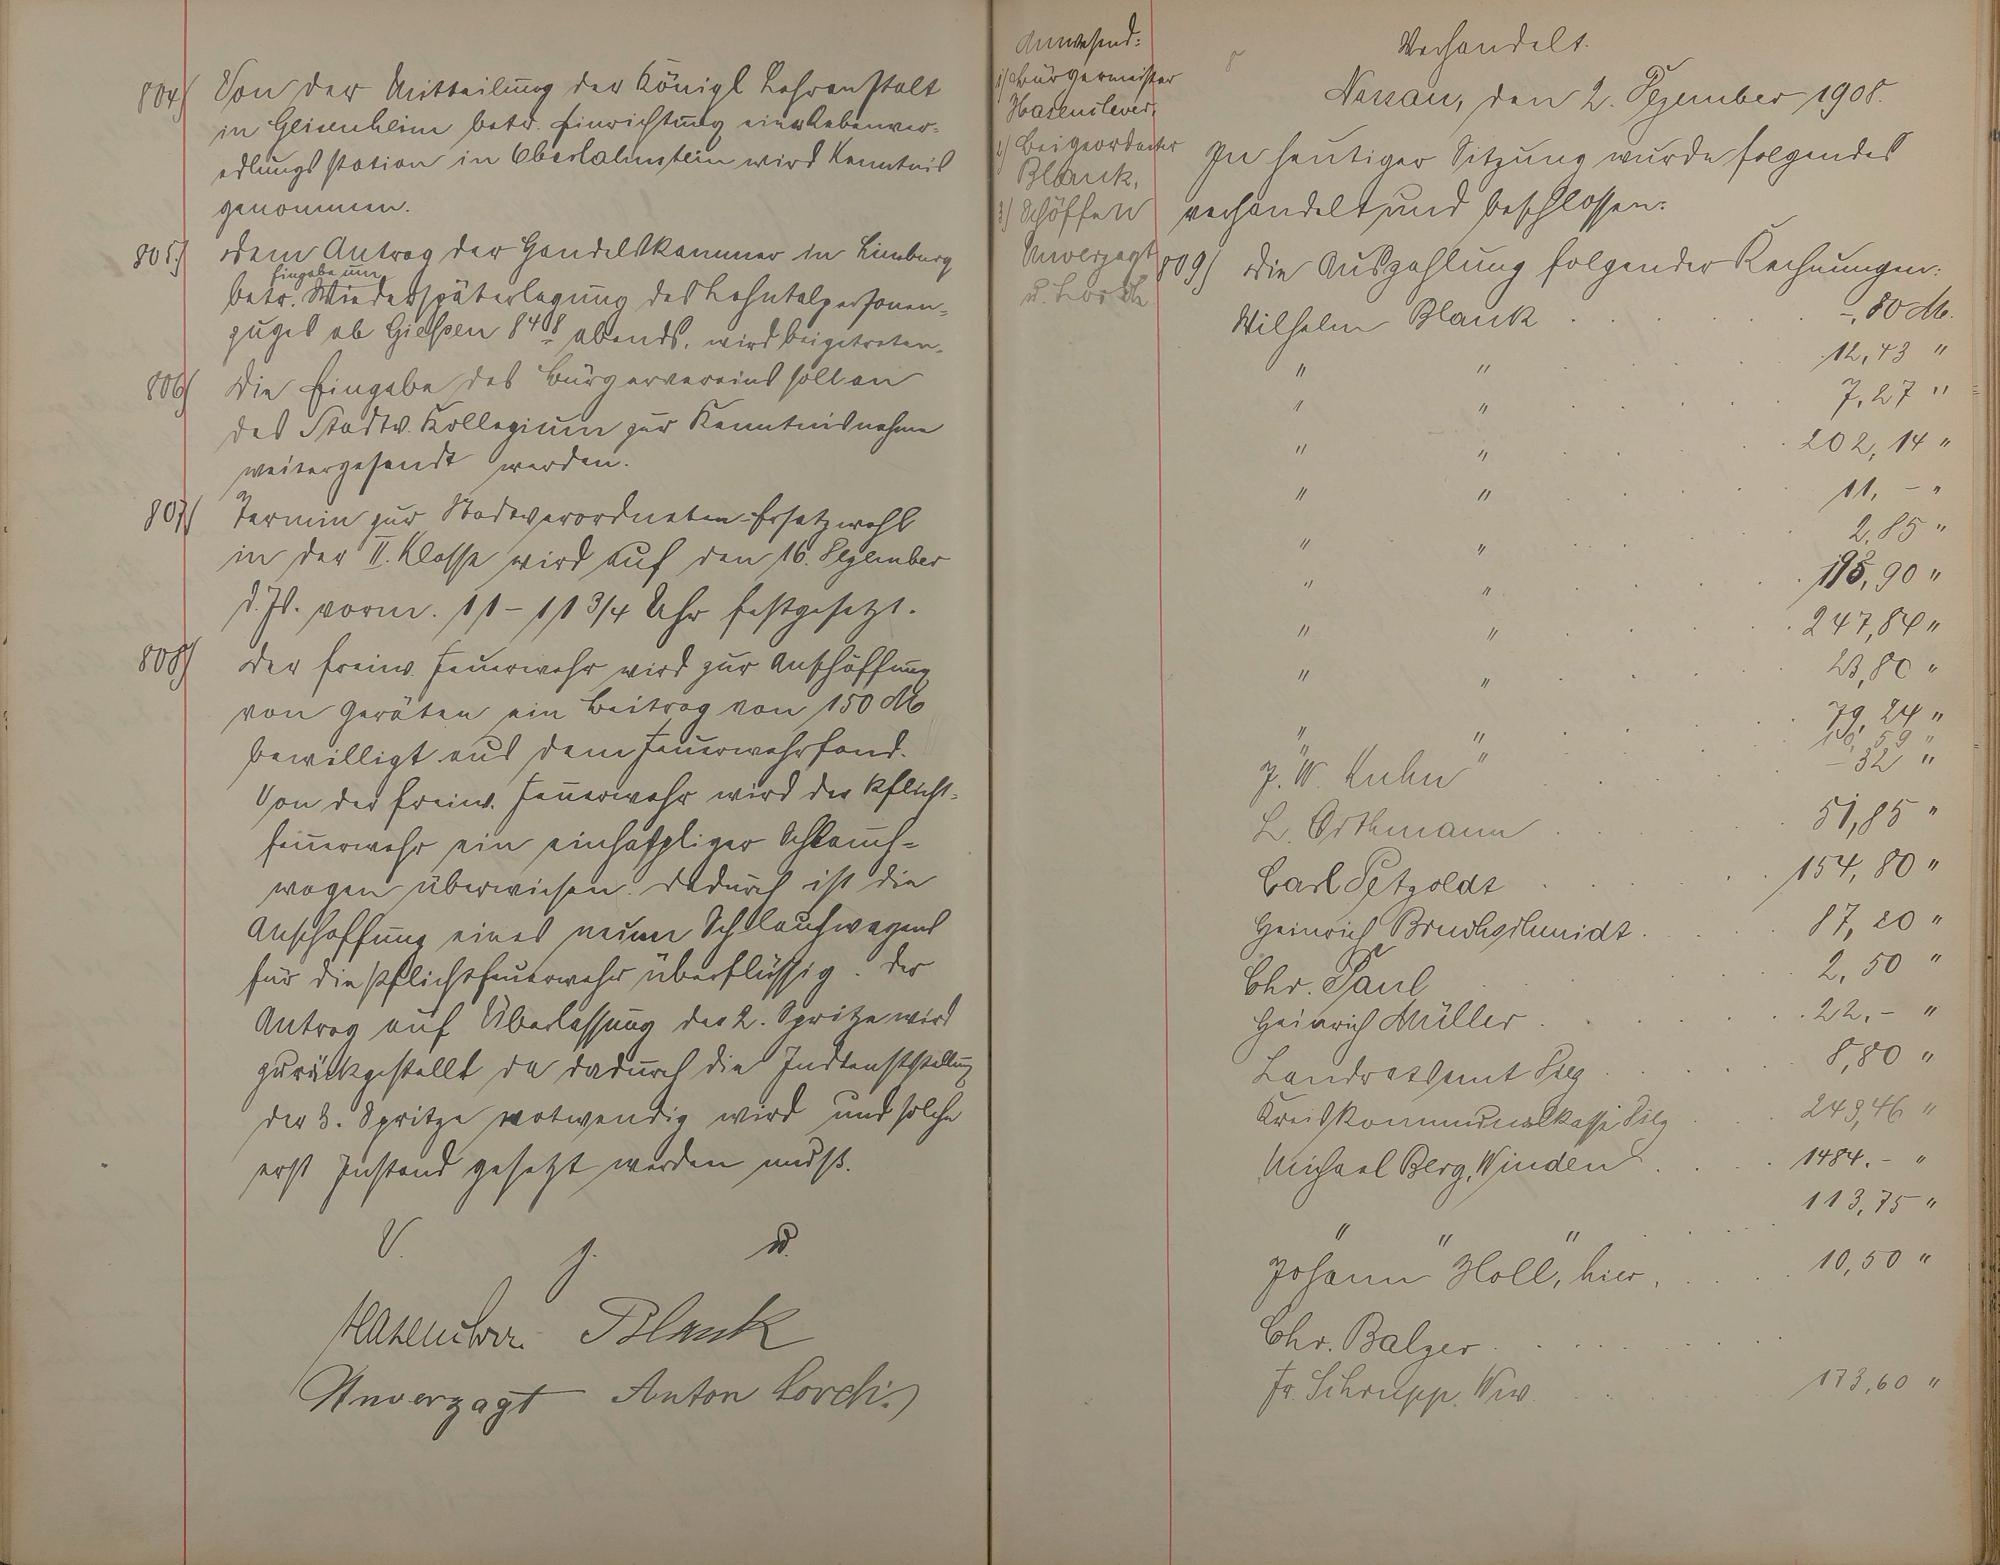 804) Von der Mitteilung der Königl Lehranstalt
in Geisenheim betr. Einrichtung einer Rebenver-
edlungsstation in Oberlahnstein wird Kenntnis
genommen.
805.) Dem Antrag der Handelskammer in Limburg
Eingabe um
betr. Wiederspäterlegung des Lahntalpersonen-
zuges ab Giessen 8 48 abends, wird beigetreten.
806) Die Eingabe des Bürgervereins soll an
das Stadtv. Kollegium zur Kenntnisnahme
weitergesandt werden.
807) Termin zur Stadtverordneten-Ersatzwahl
in der II. Klasse wird auf den 16. Dezember
d. Js. vorm. 11 - 11 3/4 Uhr festgesetzt.
808) Der freiw. Feuerwehr wird zur Anschaffung
von Geräten ein Beitrag von 150 M
bewilligt aus dem Feuerwehrfond.
Von der freiw. Feuerwehr wird der Pflicht-
feuerwehr ein einhaspliger Schlauch-
wagen überwiesen. Dadurch ist die
Anschaffung eines neuen Schlauchwagens
für die Pflichtfeuerwehr überflüssig. Der
Antrag auf Überlassung der 2. Spritze wird
zurückgestellt da dadurch die Indienststellung
der 3. Spritze notwendig wird und solche
erst Instand gesetzt werden muß.
V. g. u.
Hasenclever. Blank
Unverzagt Anton Lorch.
Anwesend:
1) Bürgermeister
Hasenclever,
2) Beigeordneter
Blank,
3) Schöffen
Unverzagt
u. Lorch
Verhandelt.
Nassau, den 2. Dezember 1908.
In heutiger Sitzung wurde folgendes
verhandelt und beschlossen:
809) Die Auszahlung folgender Rechnungen:
Wilhelm Blank . . . -,80 M.
" " . . . 12,43 "
" " . . . 7,27 "
" " . . . 202,14 "
" " . . . 11,- "
" " . . . 2,85 "
" " . . . 195,90 "
" " . . . 247,84 "
" " . . . 23,80 "
" " . . . 79,24 "
" " . . . 59 "
J. W. Kuhn . . . -32 "
L. Orthmann . . . 51,85 "
Carl Petzoldt . . . 154,80 "
Heinrich Bruchschmidt . . . 87,20 "
Chr. Paul . . . 2,50 "
Heinrich Müller . . . 22,- "
Landratsamt Diez . . . 8,80 "
Kreiskommunalkasse Diez . . . 249,46 "
Michael Berg, Winden . . . 1484.- "
" " " . . . 113,75 "
Johann Holl, hier, . . . 10,50 "
Chr. Balzer . . .
Fr. Schrupp. Ww. . . . 173,60 "